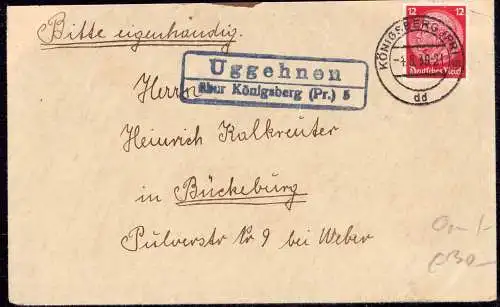 Bitte eigenhändig.
12 12
Deutsches Reich
KÖNIGSBERG (PR)
dd
Uggehnen
über Königsberg (Pr.) 5
Herrn
Heinrich Kalkreuter
in Bückeburg
Pulverstr Nr 9 bei Weber